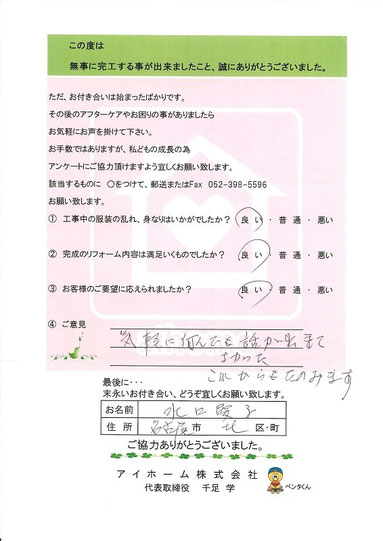 この度は
無事に完工する事が出来ましたこと、誠にありがとうございました。
ただ、お付き合いは始まったばかりです。
その後のアフターケアやお困りの事がありましたら
お気軽にお声を掛けて下さい。
お手数ではありますが、私どもの成長の為
アンケートにご協力頂けますよう宜しくお願い致します。
該当するものに ○をつけて、郵送またはFax 052-398-5596
お願い致します。
① 工事中の服装の乱れ、身なりはいかがでしたか? 良い・普通・悪い
② 完成のリフォーム内容は満足いくものでしたか? 良い・普通・悪い
③ お客様のご要望に応えられましたか? 良い・普通・悪い
④ ご意見
気軽に何んでも話が出来て
よかった
これからもたのみます
最後に・・・
末永いお付き合い、どうぞ宜しくお願い致します。
お名前 水口 子
住所 名古屋市 北 区・町
ご協力ありがとうございました。
アイホーム株式会社
代表取締役 千足 学
ペンタくん